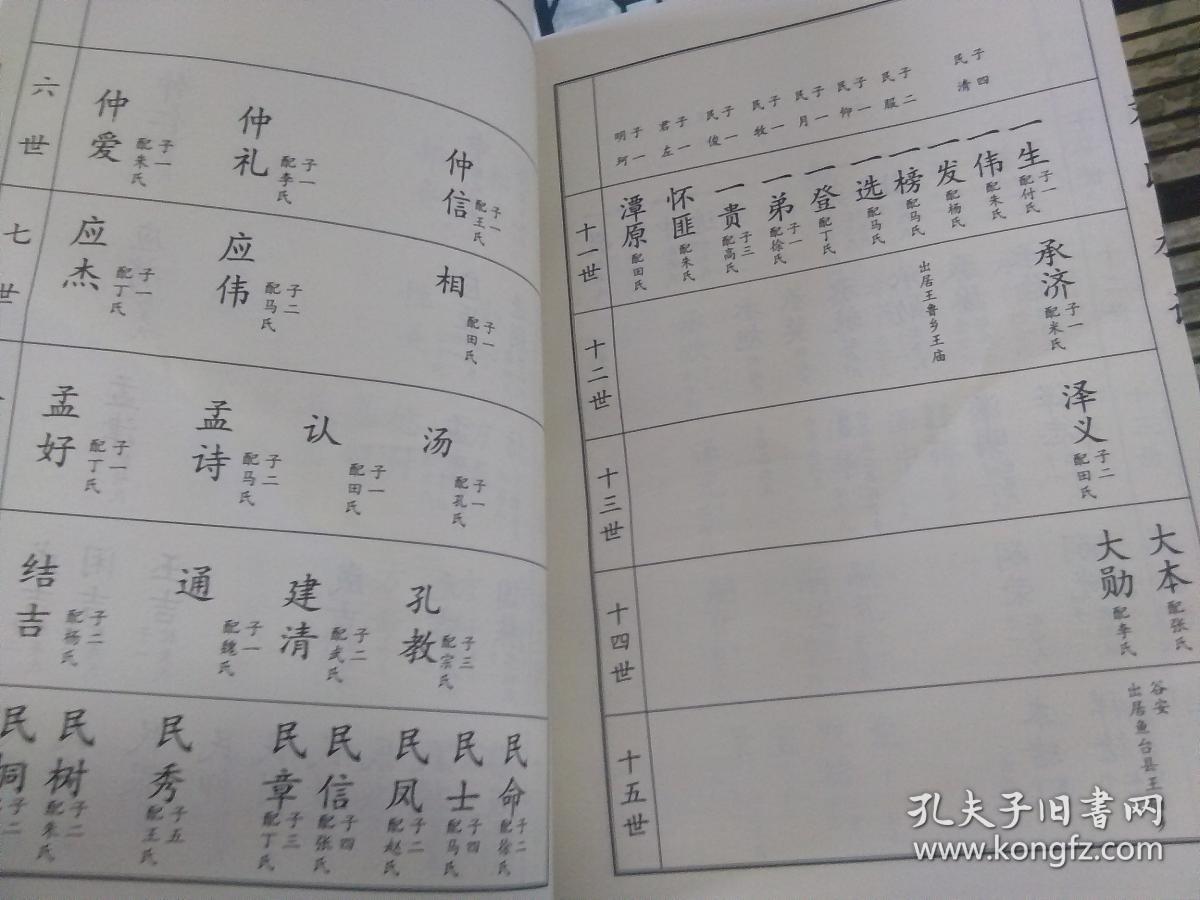 六世
仲信
子一
配王氏
仲礼
子一
配李氏
仲爱
子一
配朱氏
七世
相
子一
配田氏
应伟
子二
配马氏
应杰
子一
配丁氏
汤
子一
配孔氏
认
子一
配田氏
孟诗
子二
配马氏
孟好
子一
配丁氏
孔教
子三
配宗氏
建清
子二
配武氏
通
子一
配魏氏
结吉
子二
配杨氏
民命
子二
配徐氏
民士
子四
配马氏
民凤
子二
配赵氏
民信
子四
配张氏
民章
子三
配丁氏
民秀
子五
配王氏
民树
子二
配朱氏
民桐
子二
民清
子四
民服
子二
民仰
子一
民月
子一
民牧
子一
民俊
子一
君左
子一
明珂
子一
十一世
一生
子一
配付氏
一伟
配朱氏
一发
配杨氏
一榜
配马氏
一选
配马氏
一登
配丁氏
一弟
子一
配徐氏
一贵
子三
配高氏
怀匪
配朱氏
潭原
配田氏
十二世
承济
子一
配米氏
出居王鲁乡王庙
十三世
泽义
子二
配田氏
十四世
大本
配张氏
大勋
配李氏
十五世
谷安
出居鱼台县王
孔夫子旧书网
www.kongfz.com